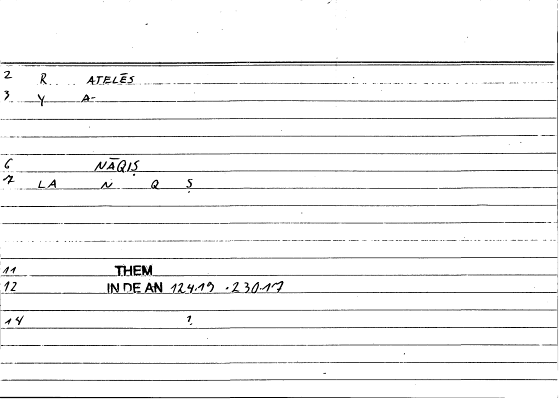 2 R ATELĒS
3 Y A-
6 NĀQIṢ
7 LA N Q Ṣ
11 THEM
12 IN DE AN 124.19 .230.17
14 1.